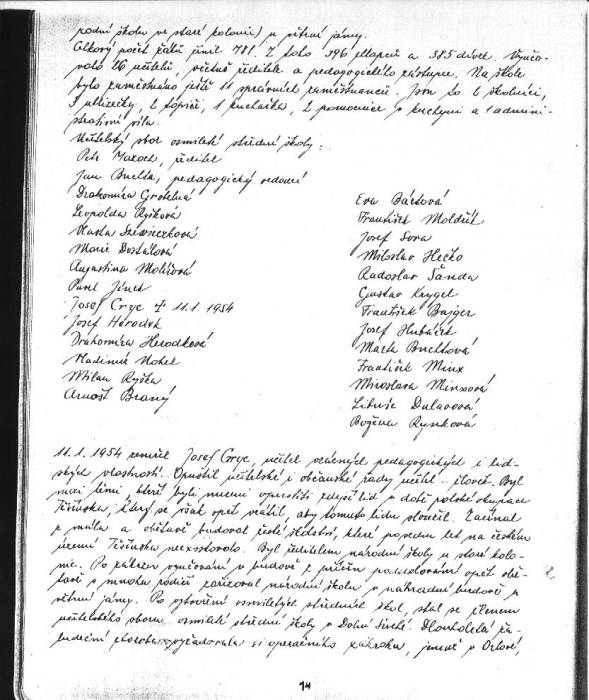 rodní školu ve staré kolonii) u větrní jámy.
Celkový počet žáků činil 781. Z toho 396 chlapců a 385 dívek. Vyučo-
valo 26 učitelů, včetně ředitele a pedagogického zástupce. Na škole
bylo zaměstnáno ještě 11 správních zaměstnanců. Jsou to 2 školníci,
3 uklízečky, 2 topiči, 1 kuchařka, 2 pomocnice v kuchyni a 1 admini-
strativní síla.
Učitelský sbor osmileté střední školy:
Petr Maroch, ředitel
Jan Buchta, pedagogický vedoucí
Drahomíra Grötelná
Leopolda Ryšková
Vlasta
Marie Dostálová
Augustina
Pavel
Josef Cryc † 11.1. 1954
Josef Herodek
Drahomíra Herodková
Vladimír Nohel
Milan Ryška
Arnošt Braný
Eva Bártová
František Moldřík
Josef Sova
Miloslav Hečko
Radoslav Šanda
Gustav Krygel
František Bajger
Josef Hubáčet
Marta Buchtová
František Minx
Miroslava Minxová
Libuše Dulavová
Božena Rynková
11.1. 1954 zemřel Josef Cryc, učitel vzácných pedagogických i lid-
ských vlastností. Opustil učitelské i občanské řady učitel - člověk. Byl
mezi těmi, kteří byli nuceni opustiti zdejší lid v době polské okupace
Těšínska, který se však opět vrátil, aby tomuto lidu sloužil. Začínal
z mála a obětavě budoval české školství, které po sedm let na českém
území Těšínska neexistovalo. Byl ředitelem národní školy u staré kolo-
nie. Po zákazu vyučování v budově z příčin poddolování opět obě-
tavě s mnoha rodiči zařizoval národní školu v náhradní budově u
větrní jámy. Po vytvoření osmiletých středních škol, stal se členem
učitelského sboru osmileté střední školy v Dolní Suché. Dlouholetá ža-
ludeční choroba vyžadovala si operačního zákroku, jemuž v Orlové,
14